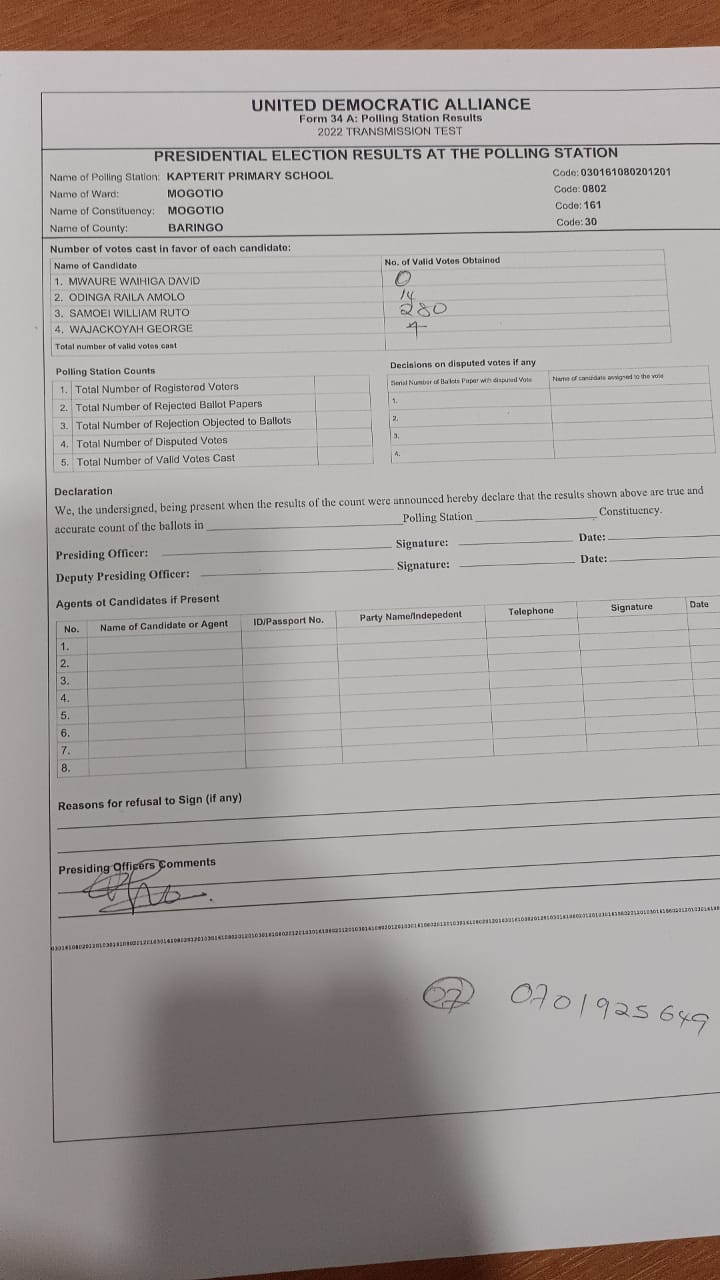 UNITED DEMOCRATIC ALLIANCE
Form 34 A: Polling Station Results
2022 TRANSMISSION TEST
PRESIDENTIAL ELECTION RESULTS AT THE POLLING STATION
Name of Polling Station: KAPTERIT PRIMARY SCHOOL Code: 030161080201201
Name of Ward: MOGOTIO Code: 0802
Name of Constituency: MOGOTIO Code: 161
Name of County: BARINGO Code: 30
Number of votes cast in favor of each candidate:
Name of Candidate No. of Valid Votes Obtained
1. MWAURE WAIHIGA DAVID 0
2. ODINGA RAILA AMOLO 14
3. SAMOEI WILLIAM RUTO 280
4. WAJACKOYAH GEORGE
Total number of valid votes cast
Polling Station Counts Decisions on disputed votes if any
Serial Number of Ballots Paper with disputed Vote Name of candidate assigned to the vote
1. Total Number of Registered Voters 1.
2. Total Number of Rejected Ballot Papers 2.
3. Total Number of Rejection Objected to Ballots 3.
4. Total Number of Disputed Votes 4.
5. Total Number of Valid Votes Cast
Declaration
We, the undersigned, being present when the results of the count were announced hereby declare that the results shown above are true and
accurate count of the ballots in Polling Station Constituency.
Presiding Officer: Signature: Date:
Deputy Presiding Officer: Signature: Date:
Agents of Candidates if Present
No. Name of Candidate or Agent ID/Passport No. Party Name/Indepedent Telephone Signature Date
1.
2.
3.
4.
5.
6.
7.
8.
Reasons for refusal to Sign (if any)
Presiding Officers Comments
07 0701925649